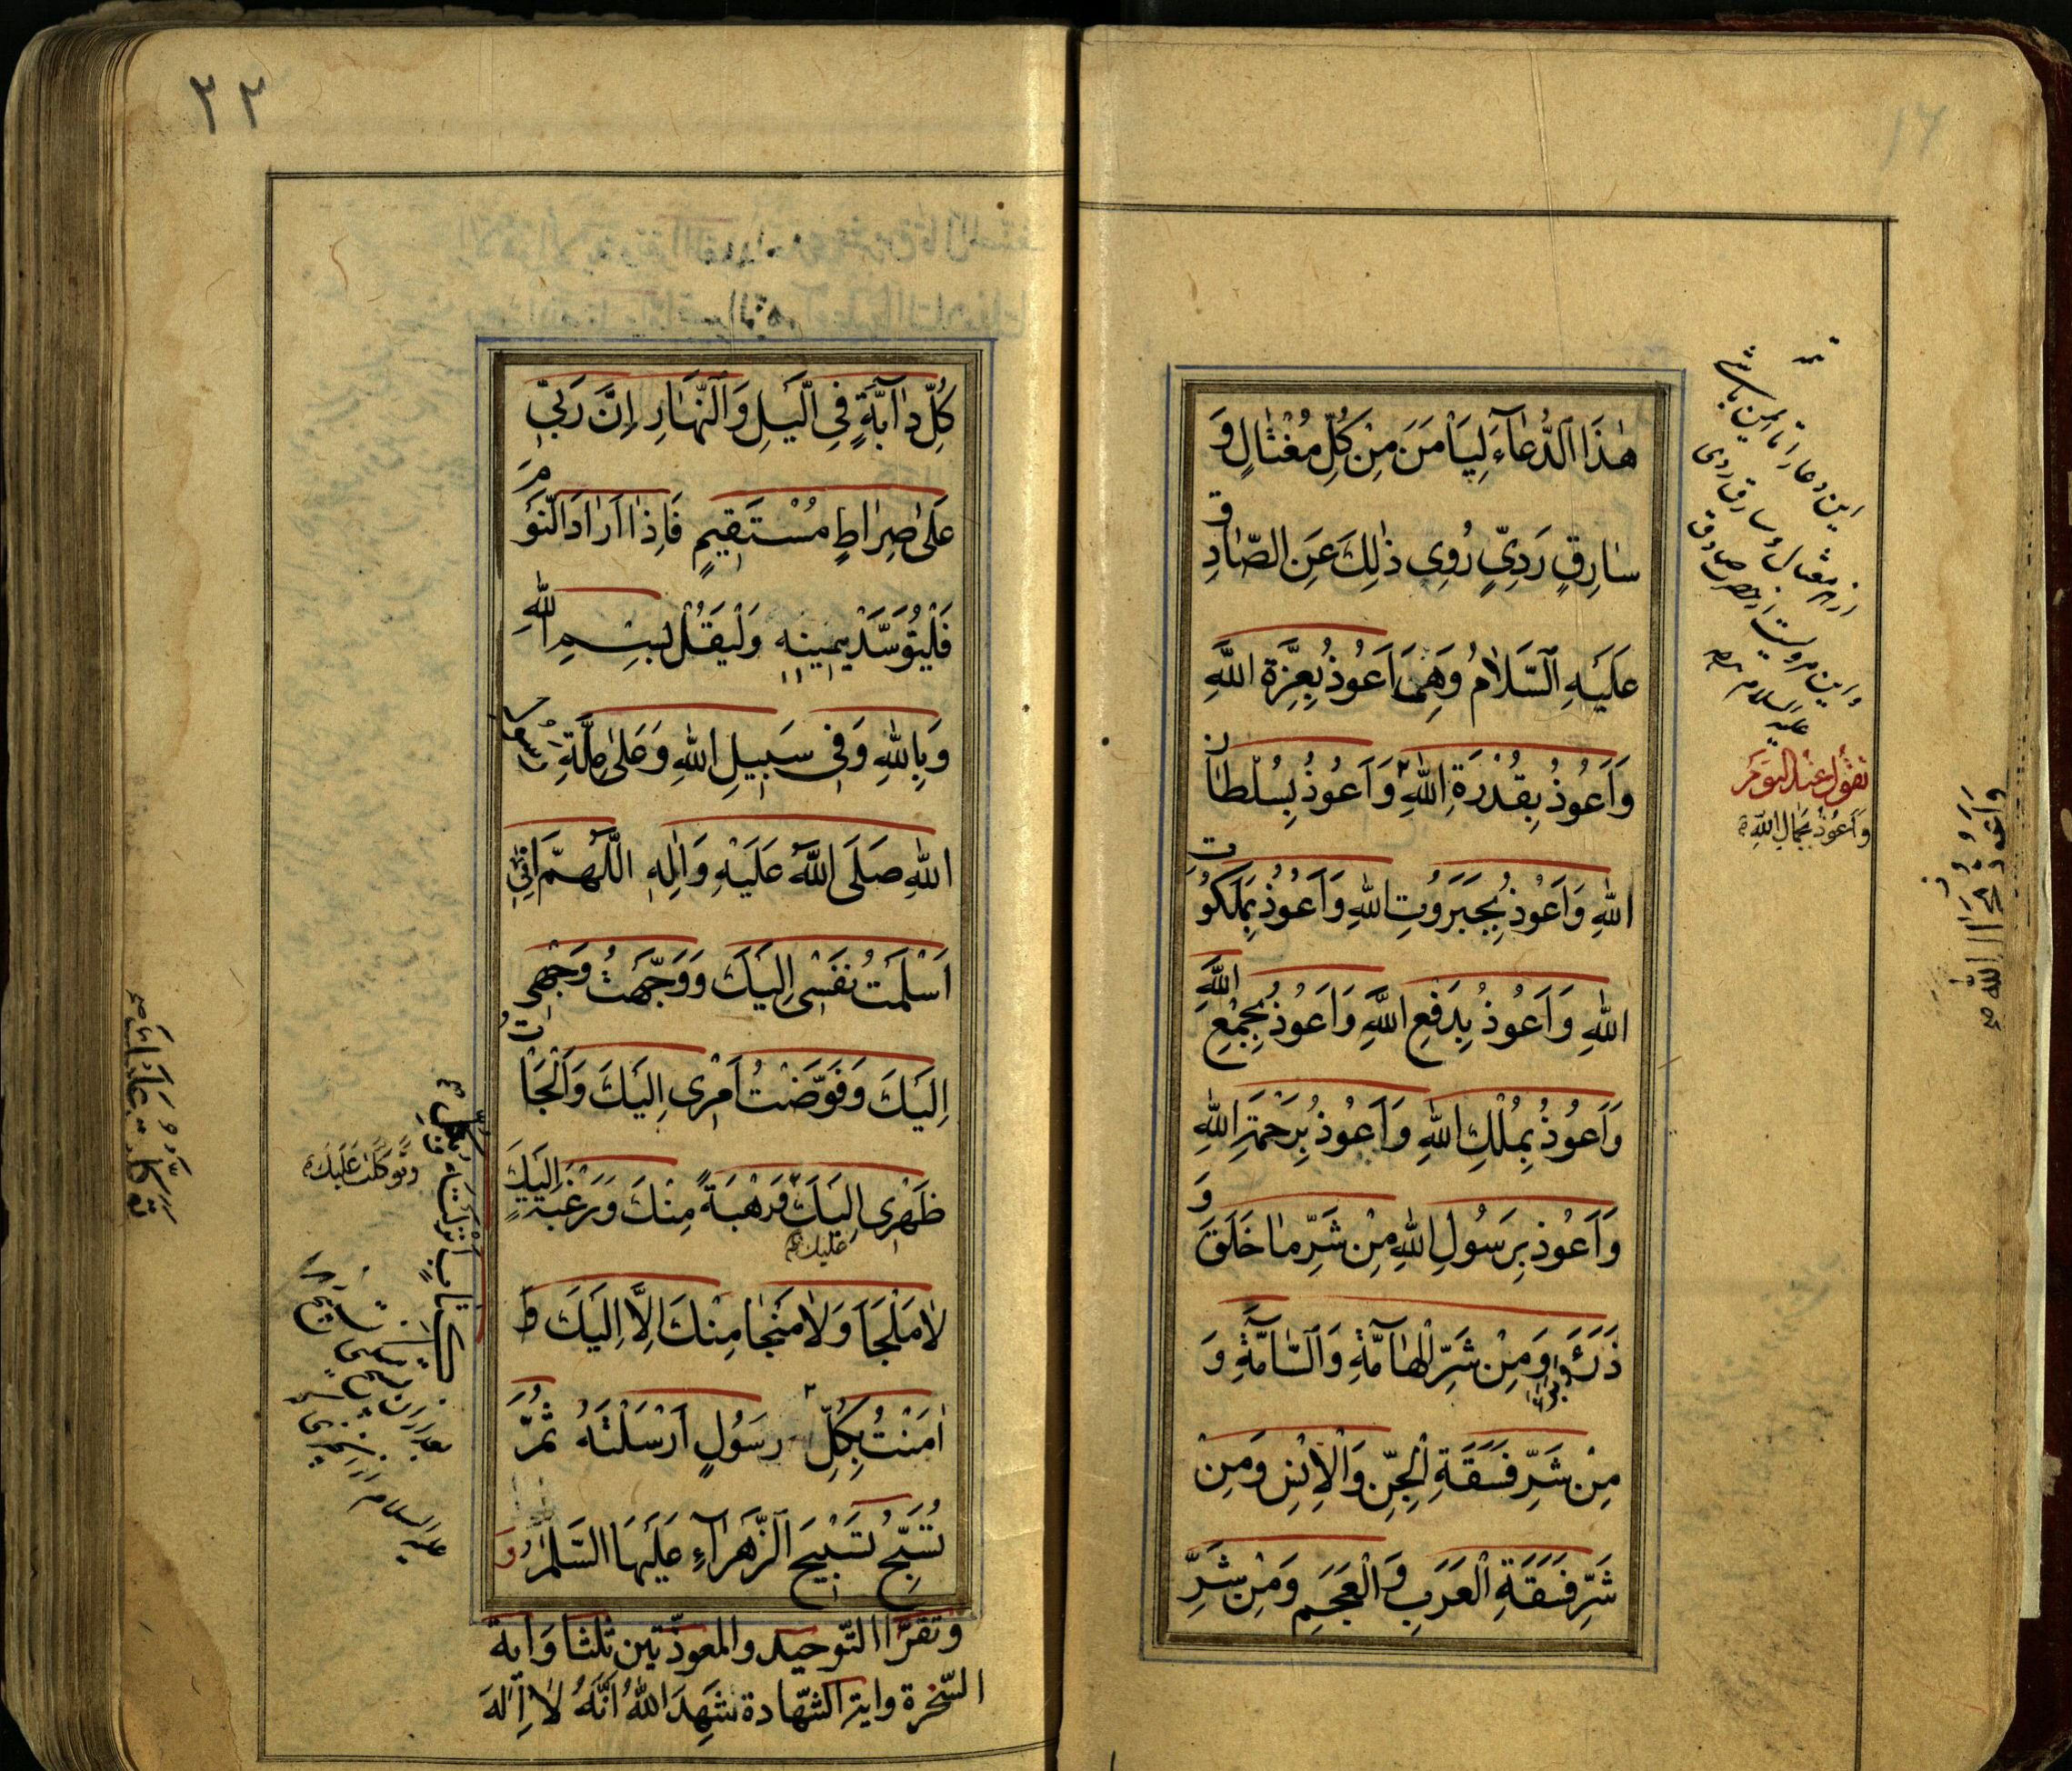 ١٦
هٰذَا الدُّعَآءَ لِيَأْمَنَ مِنْ كُلِّ مُغْتٰالٍ وَ
سٰارِقٍ رَدِيٍّ رُوِى ذٰلِكَ عَنِ الصّٰادِقِ
عَلَيْهِ السَّلٰامُ وَهِىَ اَعُوذُ بِعِزَّةِ اللهِ
وَاَعُوذُ بِقُدْرَةِ اللهِ وَاَعُوذُ بِسُلْطٰانِ
اللهِ وَاَعُوذُ بِجَبَرُوتِ اللهِ وَاَعُوذُ بِمَلَكُوتِ
اللهِ وَاَعُوذُ بِدَفْعِ اللهِ وَاَعُوذُ بِجَمْعِ اللهِ
وَاَعُوذُ بِمُلْكِ اللهِ وَاَعُوذُ بِرَحْمَةِ اللهِ
وَاَعُوذُ بِرَسُولِ اللهِ مِنْ شَرِّ مٰا خَلَقَ وَ
ذَرَءَ وَبَرَاَ وَمِنْ شَرِّ الْهٰامَّةِ وَالسّٰامَّةِ وَ
مِنْ شَرِّ فَسَقَةِ الْجِنِّ وَالْاِنْسِ وَمِنْ
شَرِّ فَسَقَةِ الْعَرَبِ وَالْعَجَمِ وَمِنْ شَرِّ
این دعا را تا ایمن باشی
از هر مغتال و سارق ردی
و این مرویست از حضرت صادق
علیه السلام
تقول عند النوم
وَاَعُوذُ بِجَمٰالِ اللهِ
٢٢
كُلِّ دٰآبَّةٍ فِى الَّيْلِ وَالنَّهٰارِ اِنَّ رَبِّى
عَلىٰ صِرٰاطٍ مُسْتَقِيمٍ فَاِذٰا اَرٰادَ النَّوْمَ
فَلْيَتَوَسَّدْ يَمِينِهِ وَلْيَقُلْ بِسْمِ اللهِ
وَبِاللهِ وَفِى سَبِيلِ اللهِ وَعَلىٰ مِلَّةِ رَسُولِ
اللهِ صَلَّى اللهُ عَلَيْهِ وَاٰلِهِ اللّٰهُمَّ اِنِّى
اَسْلَمْتُ نَفْسِى اِلَيْكَ وَوَجَّهْتُ وَجْهِى
اِلَيْكَ وَفَوَّضْتُ اَمْرِى اِلَيْكَ وَاَلْجَاْتُ
ظَهْرِى اِلَيْكَ رَهْبَةً مِنْكَ وَرَغْبَةً اِلَيْكَ
عليك
لٰا مَلْجَاَ وَلٰا مَنْجٰا مِنْكَ اِلَّا اِلَيْكَ
اٰمَنْتُ بِكُلِّ رَسُولٍ اَرْسَلْتَهُ ثُمَّ
تُسَبِّحُ تَسْبِيحَ الزَّهْرٰآءِ عَلَيْهَا السَّلٰمُ وَ
وتقرَاُ التّوحيد والمعوذتين ثلثا وَاية
السّخرة واية الشّهادة شَهِدَ اللهُ اَنَّهُ لٰا اِلٰهَ
وَتَوَكَّلْتُ عَلَيْكَ
كِتَابٍ اَنْزَلْتَهُ وَبِكُلِّ
علیه السلام